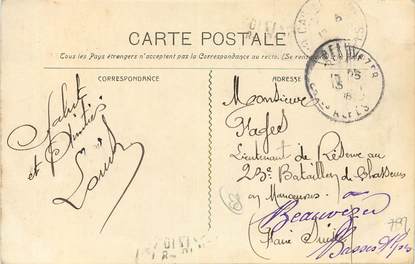 CARTE POSTALE
Tous les Pays étrangers n'acceptent pas la Correspondance au recto. (Se renseigner
CORRESPONDANCE
ADRESSE
Salut
et Amitiés
Monsieur
Fages
Lieutenant de Réserve au
23e Bataillon de Chasseurs
en Manœuvres
Beauvezer
(Faire Suivre)
Basses Alpes
BEAUVEZER